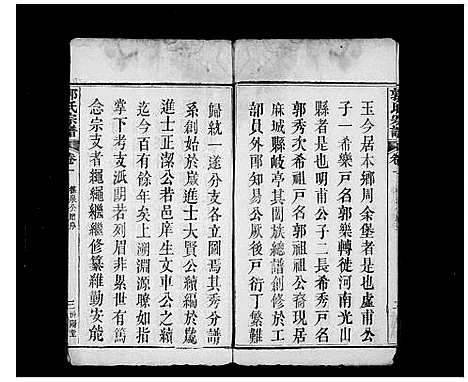 玉今居本鄉周余堡者是也盧甫公
子一希樂戸名郭樂轉徙河南光山
縣者是也明甫公子二長希秀戸名
郭秀次希祖戸名郭祖祖公裔現居
麻城縣岐亭其闔族總譜創修於工
部員外郎知易公厥後戸衍丁繁難
歸統一遂分支各立圖焉其秀分譜
系創始於歲進士大賢公續編於歲
進士正潔公若邑庠生文車公之續
迄今百有餘年矣上溯淵源瞭如指
掌下考支派朗若列眉非累世有篤
念宗支者繩繩繼繼修纂維勤安能
郭氏宗譜
卷一
三
汾陽堂
郭氏宗譜
卷一